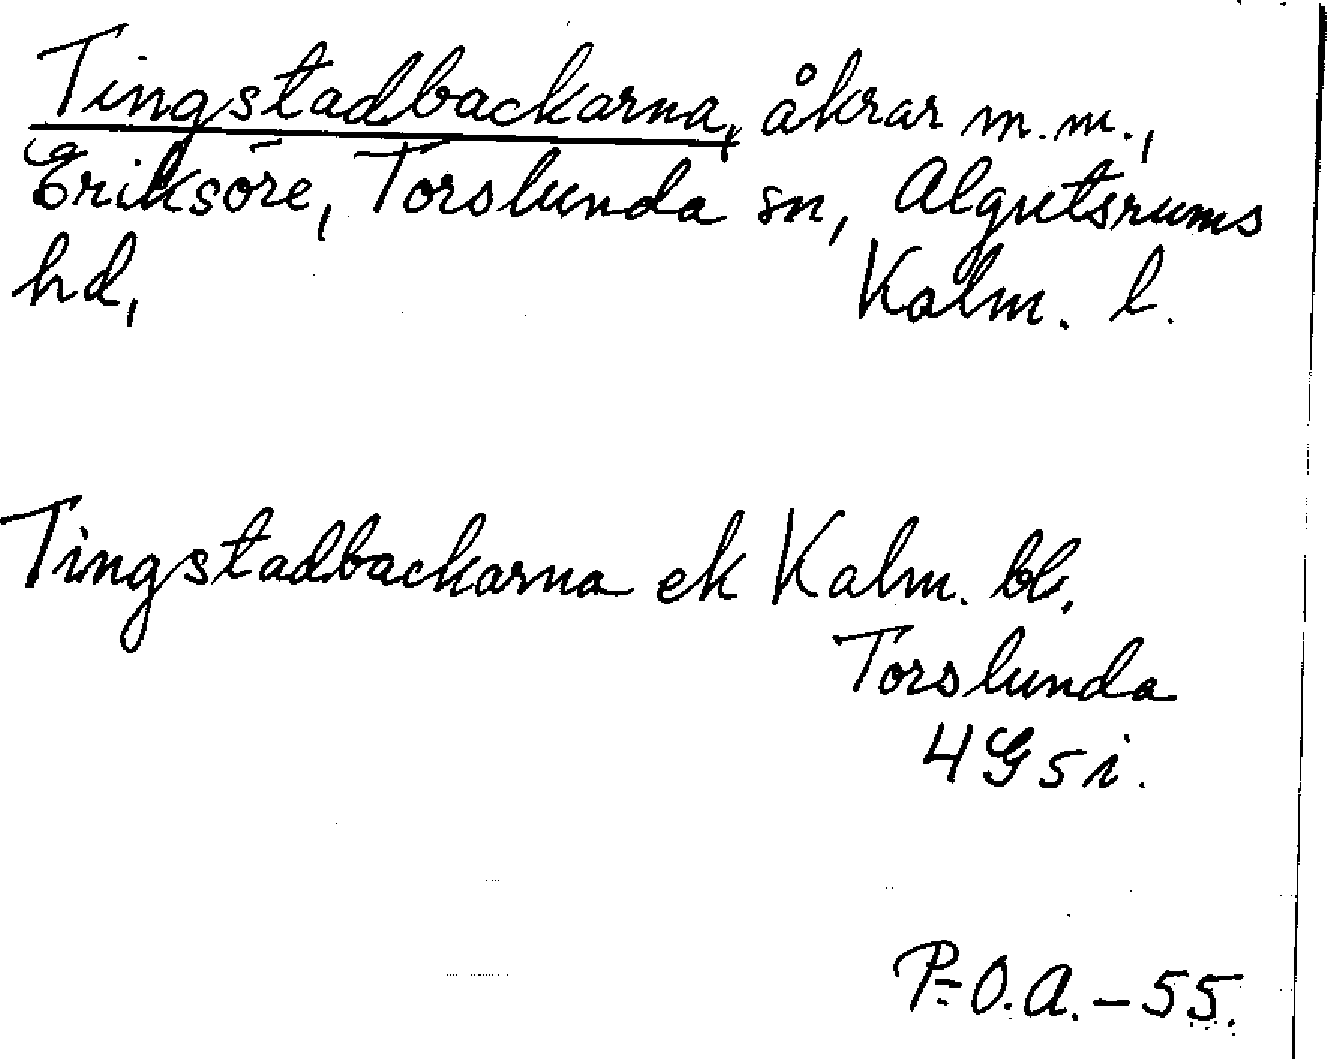 Tingstadbackarna, åkrar m.m.,
Eriksöre, Torslunda sn, Algutsrums
hd, Kalm. l.
Tingstadbackarna ek Kalm. bl.
Torslunda
4G5i.
P-O.A.-55.